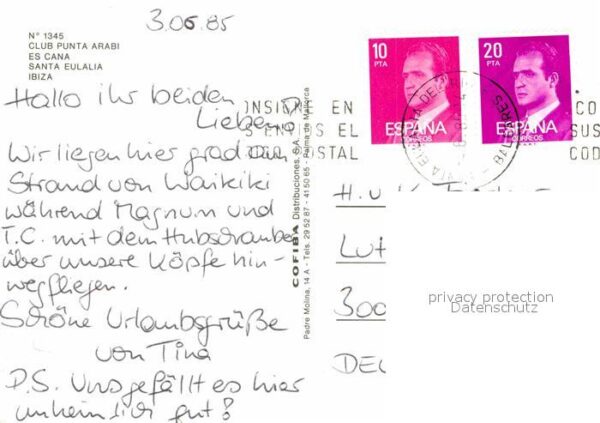 3.06.85
N° 1345
CLUB PUNTA ARABI
ES CANA
SANTA EULALIA
IBIZA
Hallo ihr beiden
Lieben!
Wir liegen hier grad am
Strand von Waikiki
während Magnum und
T.C. mit dem Hubschrauber
über unsere Köpfe hin-
wegfliegen.
Schöne Urlaubsgrüße
von Tina
P.S. Uns gefällt es hier
unheimlich gut!
COFIBA Distribuciones, S.A.
Padre Molina, 14 A - Tels. 29 52 87 - 41 50 65 - Palma de Mallorca
10
PTA
ESPAÑA
CORREOS
20
PTA
ESPAÑA
CORREOS
ONSIGNE EN
S EL
POSTAL
CO
SUS
COD
BALEARES
H. u. K.
300
privacy protection
Datenschutz